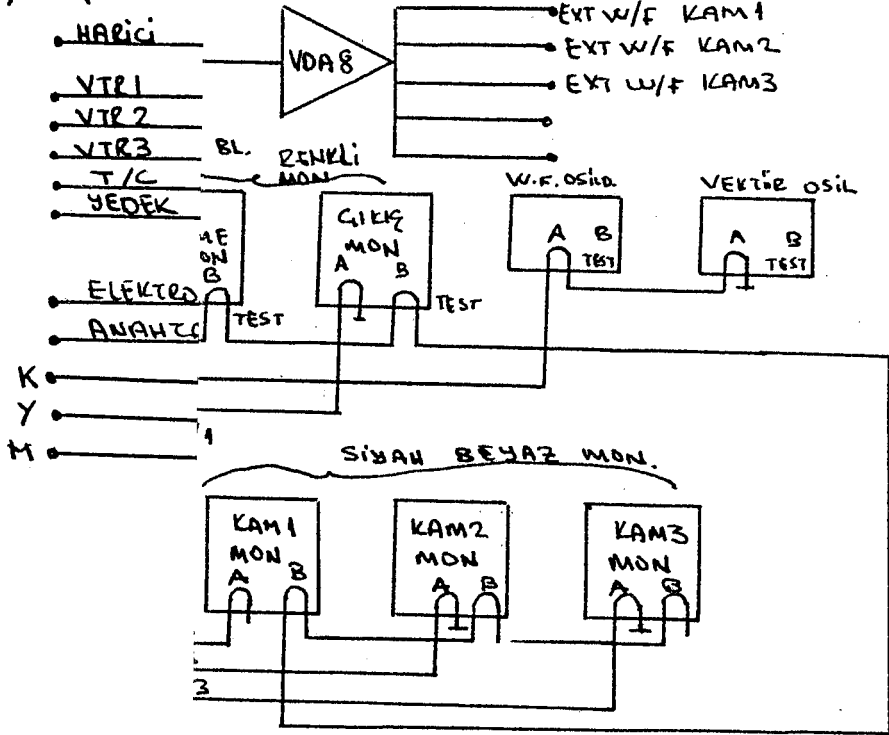 HARİCİ
VTR1
VTR2
VTR3
T/C
YEDEK
ELEKTRO
K
Y
M
VDA8
EXT W/F KAM1
EXT W/F KAM2
EXT W/F KAM3
BL. RENKLİ
MON
B
TEST
ÇIKIŞ
MON
A B
TEST
W.F. OSİLO
A B
TEST
VEKTÖR OSİL
A B
TEST
1
SİYAH BEYAZ MON.
KAM1
MON
A B
KAM2
MON
A B
KAM3
MON
A B
3